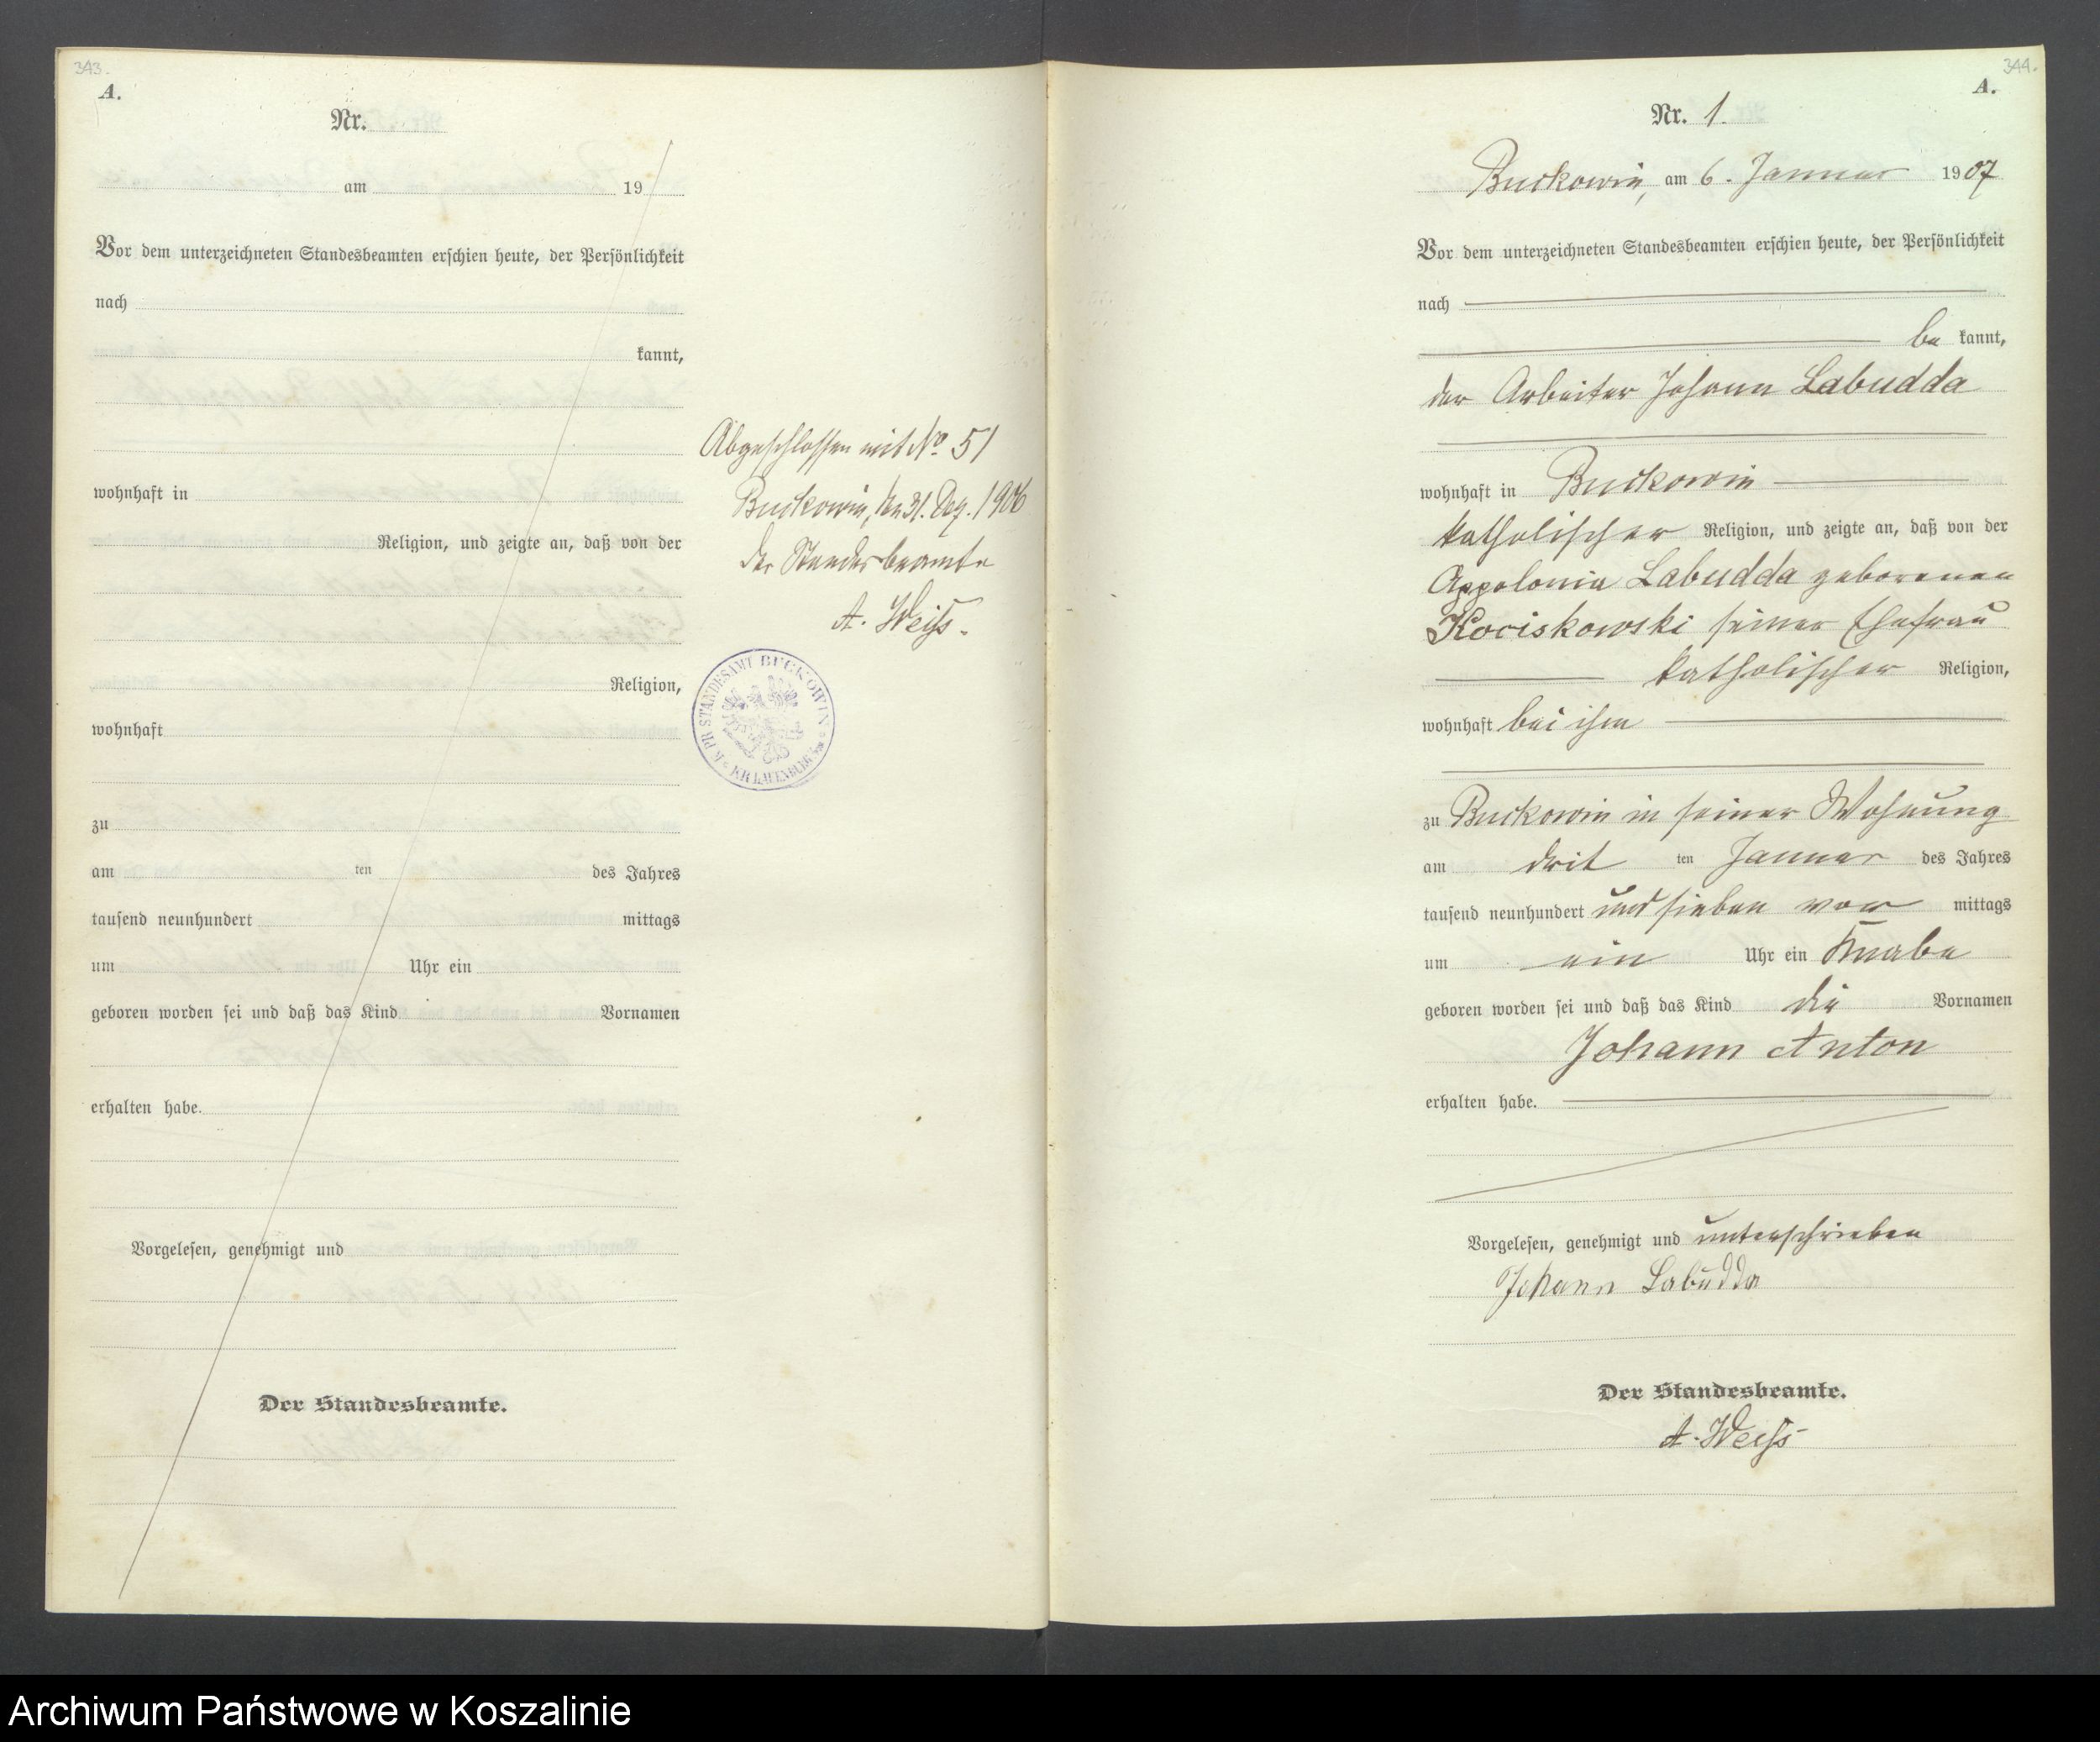 343.
A.
Nr.
am 19
Vor dem unterzeichneten Standesbeamten erschien heute, der Persönlichkeit
nach
kannt,
wohnhaft in
Religion, und zeigte an, daß von der
Religion,
wohnhaft
zu
am ten des Jahres
tausend neunhundert mittags
um Uhr ein
geboren worden sei und daß das Kind Vornamen
erhalten habe.
Vorgelesen, genehmigt und
Der Standesbeamte.
Abgeschlossen mit No. 51
Buckowin, den 31. Dez. 1906
Der Standesbeamte
A. Weiß.
K. PR. STANDESAMT BUCKOWIN
KR. LAUENBURG
344.
A.
Nr. 1.
Buckowin, am 6. Januar 1907
Vor dem unterzeichneten Standesbeamten erschien heute, der Persönlichkeit
nach
be kannt,
der Arbeiter Johann Labudda
wohnhaft in Buckowin
katholischer Religion, und zeigte an, daß von der
Appolonia Labudda geborenen
Kociskowski seiner Ehefrau
katholischer Religion,
wohnhaft bei ihm
zu Buckowin in seiner Wohnung
am drit ten Januar des Jahres
tausend neunhundert und sieben vor mittags
um ein Uhr ein Knabe
geboren worden sei und daß das Kind die Vornamen
Johann Anton
erhalten habe.
Vorgelesen, genehmigt und unterschrieben
Johann Labudda
Der Standesbeamte.
A. Weiß
Archiwum Państwowe w Koszalinie